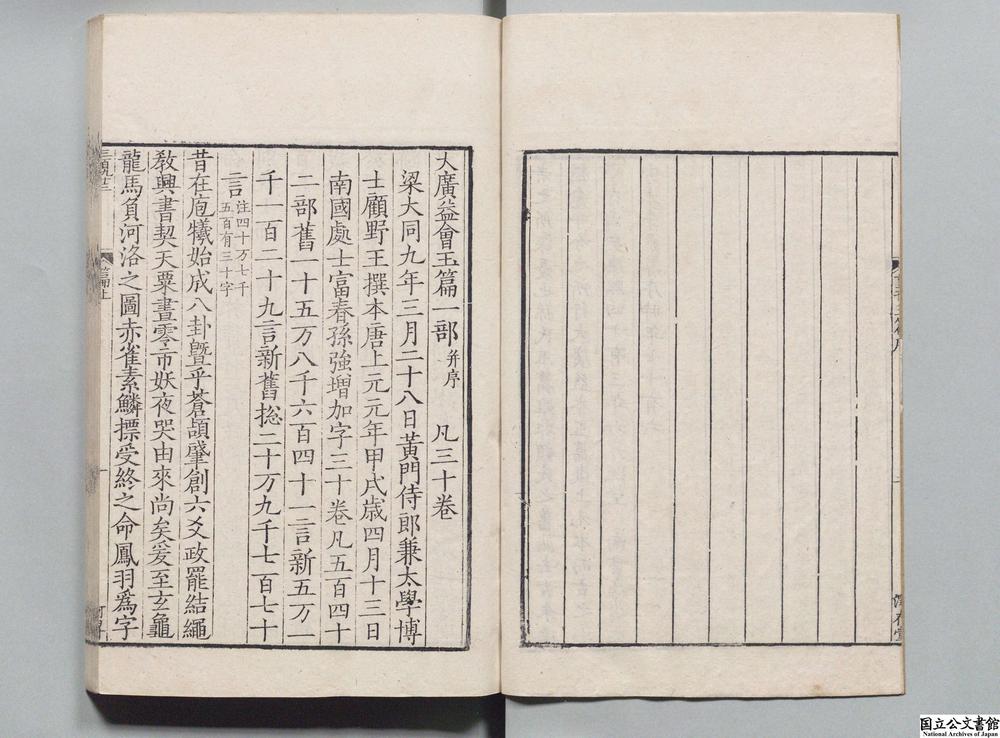 大廣益會玉篇一部并序　凡三十卷
梁大同九年三月二十八日黃門侍郎兼太學博
士顧野王撰本唐上元元年甲戌歲四月十三日
南國處士富春孫強增加字三十卷凡五百四十
二部舊一十五万八千六百四十一言新五万一
千一百二十九言新舊揔二十万九千七百七十
言注四十万七千
五百有三十字
昔在庖犧始成八卦暨乎蒼頡肇創六爻政罷結繩
敎興書契天粟晝零市妖夜哭由來尚矣爰至玄龜
龍馬負河洛之圖赤雀素鱗摽受終之命鳳羽爲字
篇上
国立公文書館
National Archives of Japan